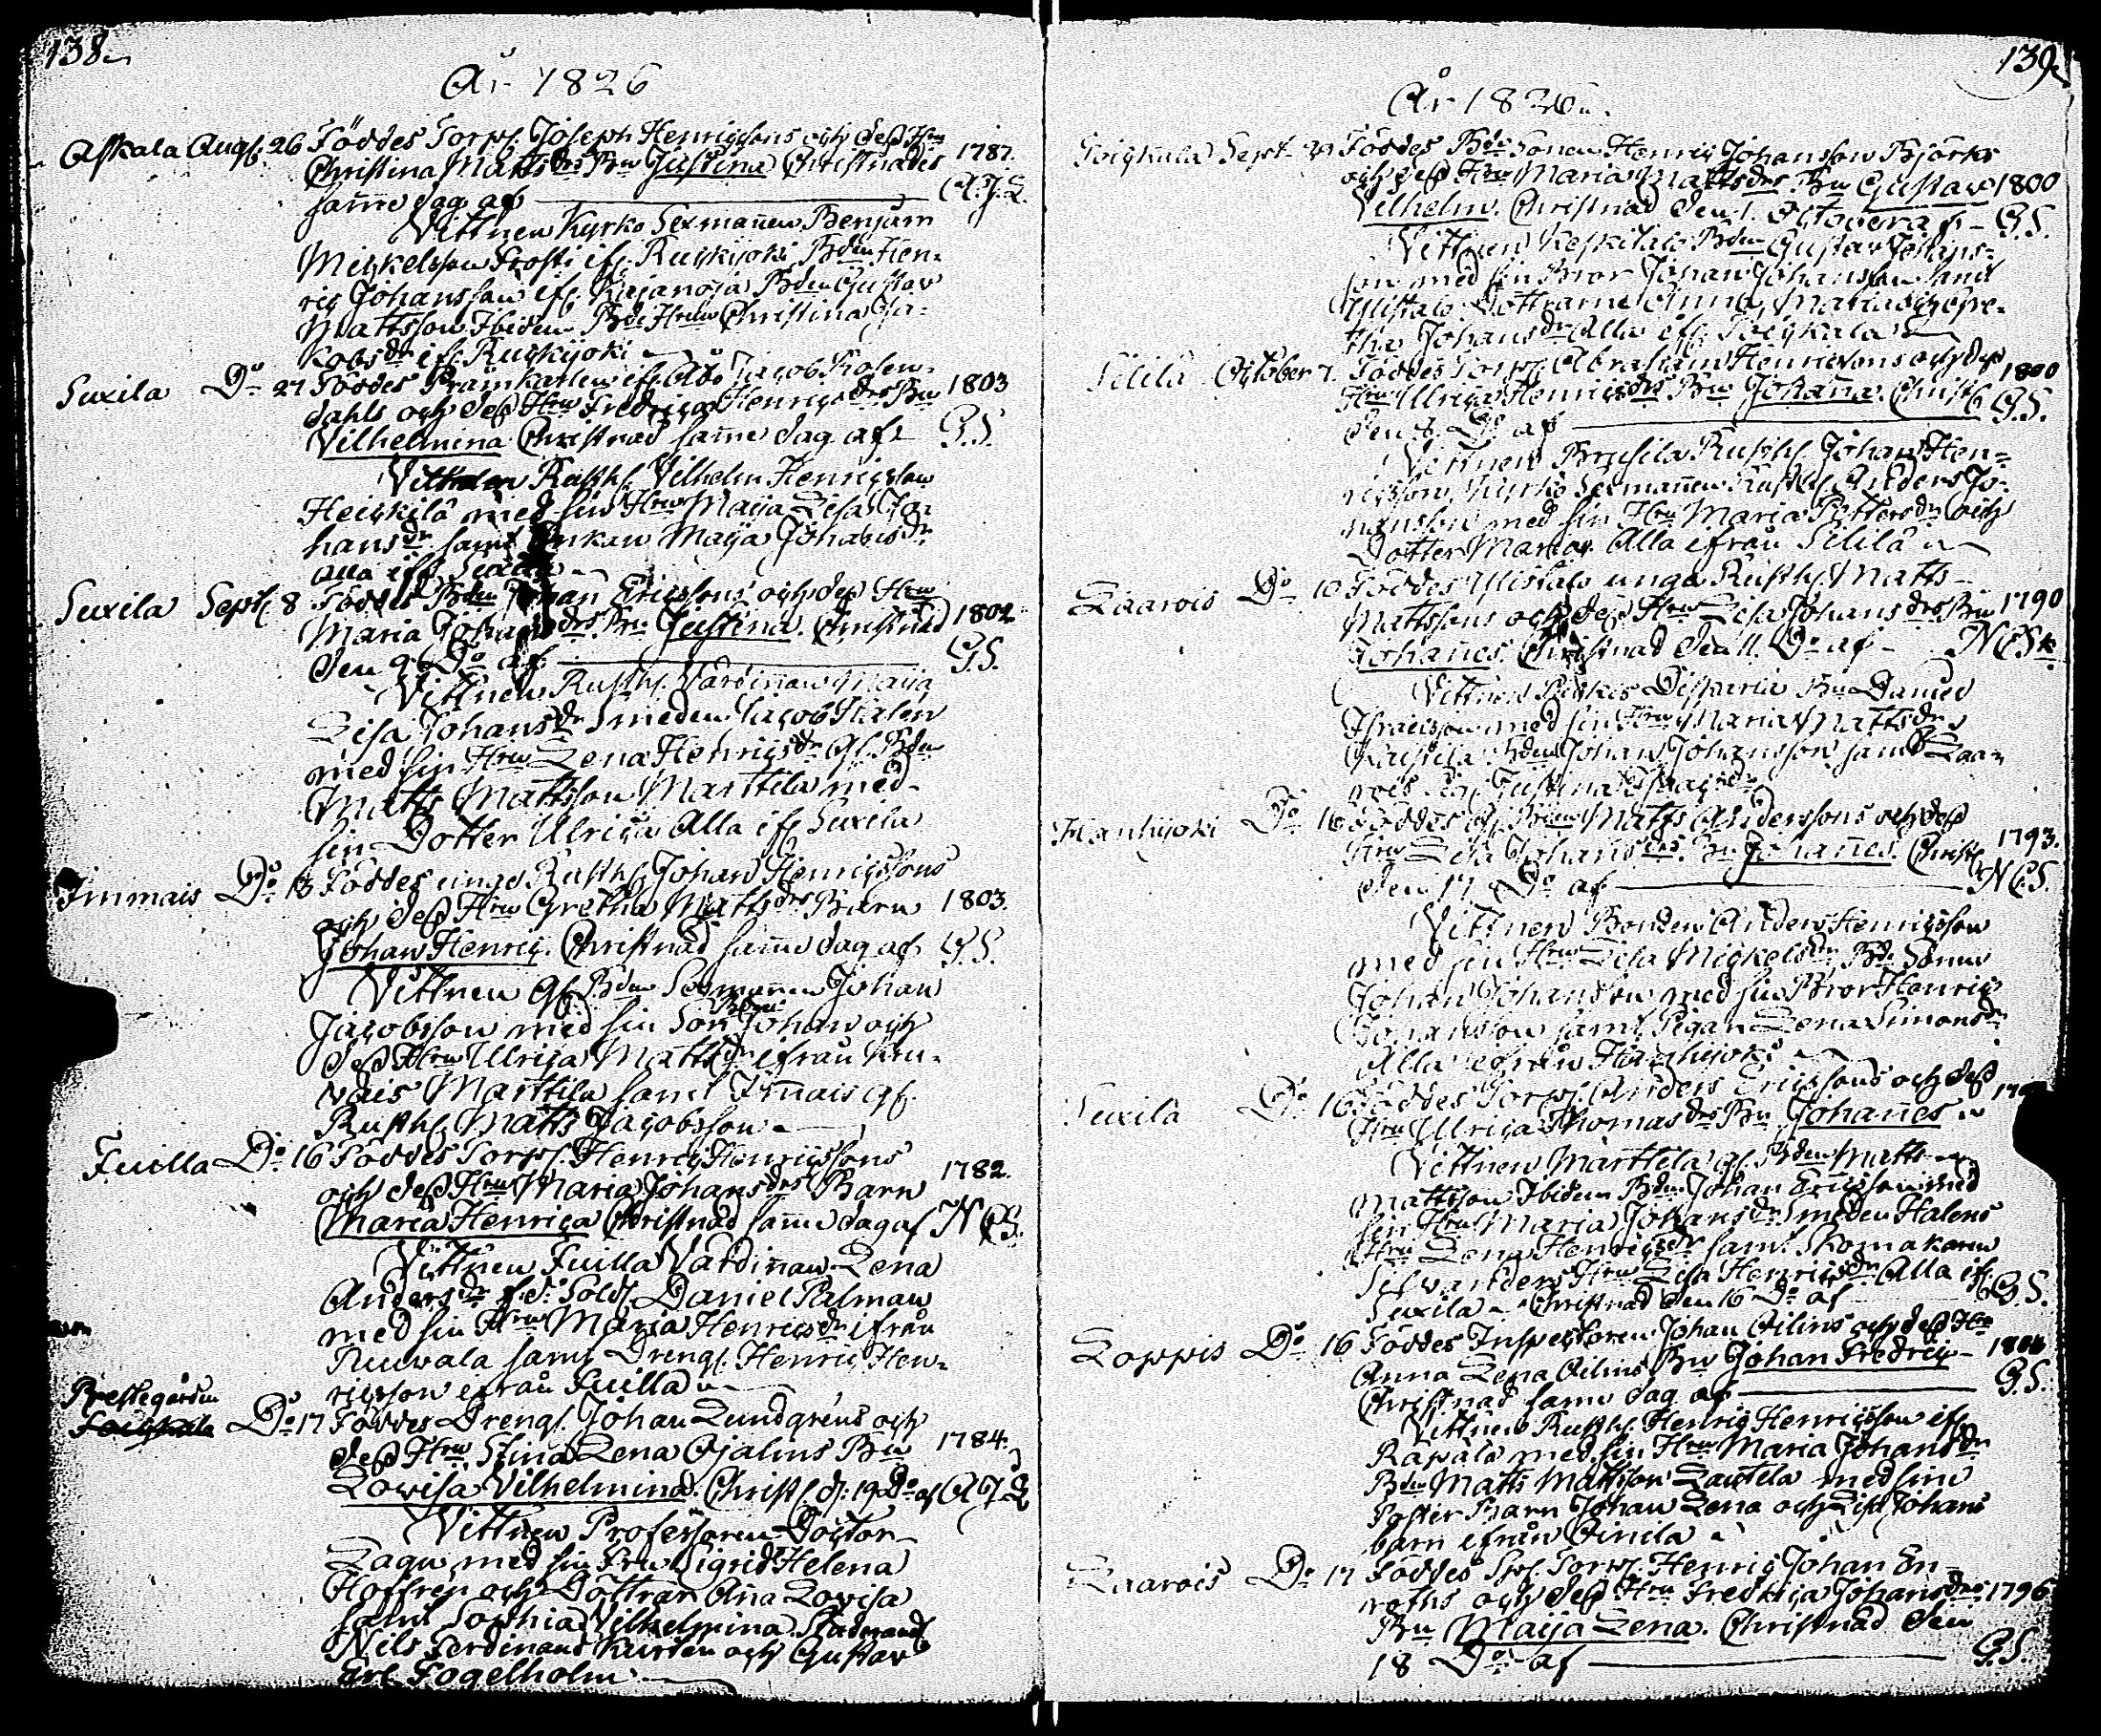 138.
År 1826
Askala Aug. 26 Föddes Torp. Joseph Henricssons och dess Hru
Christina Matts drs Bn Justina Christnades 1787.
samme dag af A.J.L.
Vittnen Kyrko Sexmannen Benjam
Mickelsson Prosti if. Ruskijoki Bden Hen-
ric Johansson if. Kajanoja Bden Gustav
Mattsson Ibidem Bde Hrun Christina Ja-
kobs dr if. Ruskijoki
Suxila Do 27 Föddes Pråmkarlen if. Åbo Jacob Rosen-
dahls och dess Hru Fredrica Henrics drs Bn 1803
Vilhelmina Christnad samme dag af G.S.
Vittnen Rusth. Vilhelm Henricsson
Heickilä med sin Hru Maija Lisa Jo-
hans dr samt Enkan Maija Johans dr
alla if. Suxila
Suxila Sept. 8 Föddes Bden Johan Ericssons och dess Hru
Maria Johans drs Bn Justina. Christnad 1802
den 9 Do af G.S.
Vittnen Rusth. Värdinnan Maija
Lisa Johans dr Smeden Jacob Halen
med sin Hru Lena Henrics dr Gl. Bden
Matts Mattsson Marttila med
sin Dotter Ulrica Alla if. Suxila
Immais Do 13 Föddes unge Rusth. Johan Henricssons
och dess Hru Gretha Matts drs Barn 1803.
Johan Henric. Christnad samme dag af G.S.
Vittnen Gl. Bden Sexmannen Johan
Jacobsson med sin Son Bden Johan och
dess Hru Ulrica Matts dr ifrån
Marttila samt Immais gl.
Rusth. Matts Jacobsson
Fuilla Do 16 Föddes Torp. Henric Henricssons
och dess Hru Maria Johans drs Barn 1782.
Maria Henrica Christnad samme dag af NCS.
Vittnen Fuilla Värdinnan Lena
Anders dr f.d. Sold. Daniel Palman
med sin Hru Maria Henrics dr ifrån
Ruuvala samt Dreng. Henric Hen-
ricsson ifrån Fuilla
Prestegården
Do 17 Föddes Dreng. Johan Lundgrens och
dess Hru Stina Lena Ojalins Bn 1784.
Lovisa Vilhelmina. Christ. d. 19 Do af A J L
Vittnen Professoren Doctor
Lagus med sin Fru Sigrid Helena
Hoffren och Döttrar Ana Lovisa
samt Sophia Vilhelmina.
Nils Ferdinand Kursten och Gustav
Fogelholm.
139.
År 1826.
Sept. 29 Föddes Bde Sonen Henric Johansson Björks
och dess Hru Maria Matts drs Bn Gustav 1800
Vilhelm. Christnad den 1. October af G.S.
Vittnen Keskitalo Bden Gustav Johans-
son med sin Bror Johan Johansson samt
Ylistalo Döttrarne Anna, Maria och Gre-
tha Johans dr Alla if.
Sililä October 7. Föddes Torp. Abraham Henricsons och dess 1800
Hru Ulrica Henrics drs Bn Johana. Christ. G.S.
den 8. Do af
Vittnen Rusth. Johan Hen-
ricsson, Kyrko Sexmannen Rusth. Anders Jo-
hansson med sin Hru Maria Petters dr och
Dotter Maria. Alla ifrån Sililä
Laarois Do 10 Föddes Ylistalo unga Rusth. Matts
Mattssons och dess Hru Lisa Johans drs Bn 1790
Johannes. Christnad den 11. Do af NCS
Vittnen Daniel
Israelsson med sin Hru Maria Matts dr,
Bden Johan Johansson samt Laa-
rois Justina
Hanhijoki Do 16 Föddes Gl. Bden Matts Anderssons och dess
Hru Lisa Johans drs Bn Johannes. Christ. 1793.
den 17 Do af NCS.
Vittnen Bonden Anders Henricsson
med sin Hru Lisa Mickels dr Bde Sonen
Johan Johansson med sin Bror Henric
Johansson samt Pigan Lena Simons dr
Alla ifrån Hanhijoki
Suxila Do 16 Föddes Torp. Anders Ericssons och dess
Hru Ulrica Thomas drs Bn Johannes
Vittnen Marttila gl. Bden Matts
Mattsson Ibidem Bden Johan Ericsson med
sin Hru Maria Johans dr Smeden Halens
Hru Lena Henrics dr samt Skomakaren
Hru Lisa Henrics dr Alla if.
Suxila Christnad den 16 Do af G.S.
Loppis Do 16 Föddes Inspectoren Johan Oilins och dess Hru
Anna Lena Oilins Bn Johan Fredric
Christnad samme dag af G.S.
Vittnen Rusth. Henric Henricsson if.
Rapala med sin Hru Maria Johans dr
Bden Matts Mattsson Lauttila med sina
Foster Barn Johan Lena och Lisa Johans
barn ifrån Oinila
Laarois Do 17 Föddes Torp. Henric Johan En-
roths och dess Hru Fredrica Johans drs 1796
Bn Maija Lena. Christnad den
18 Do af G.S.